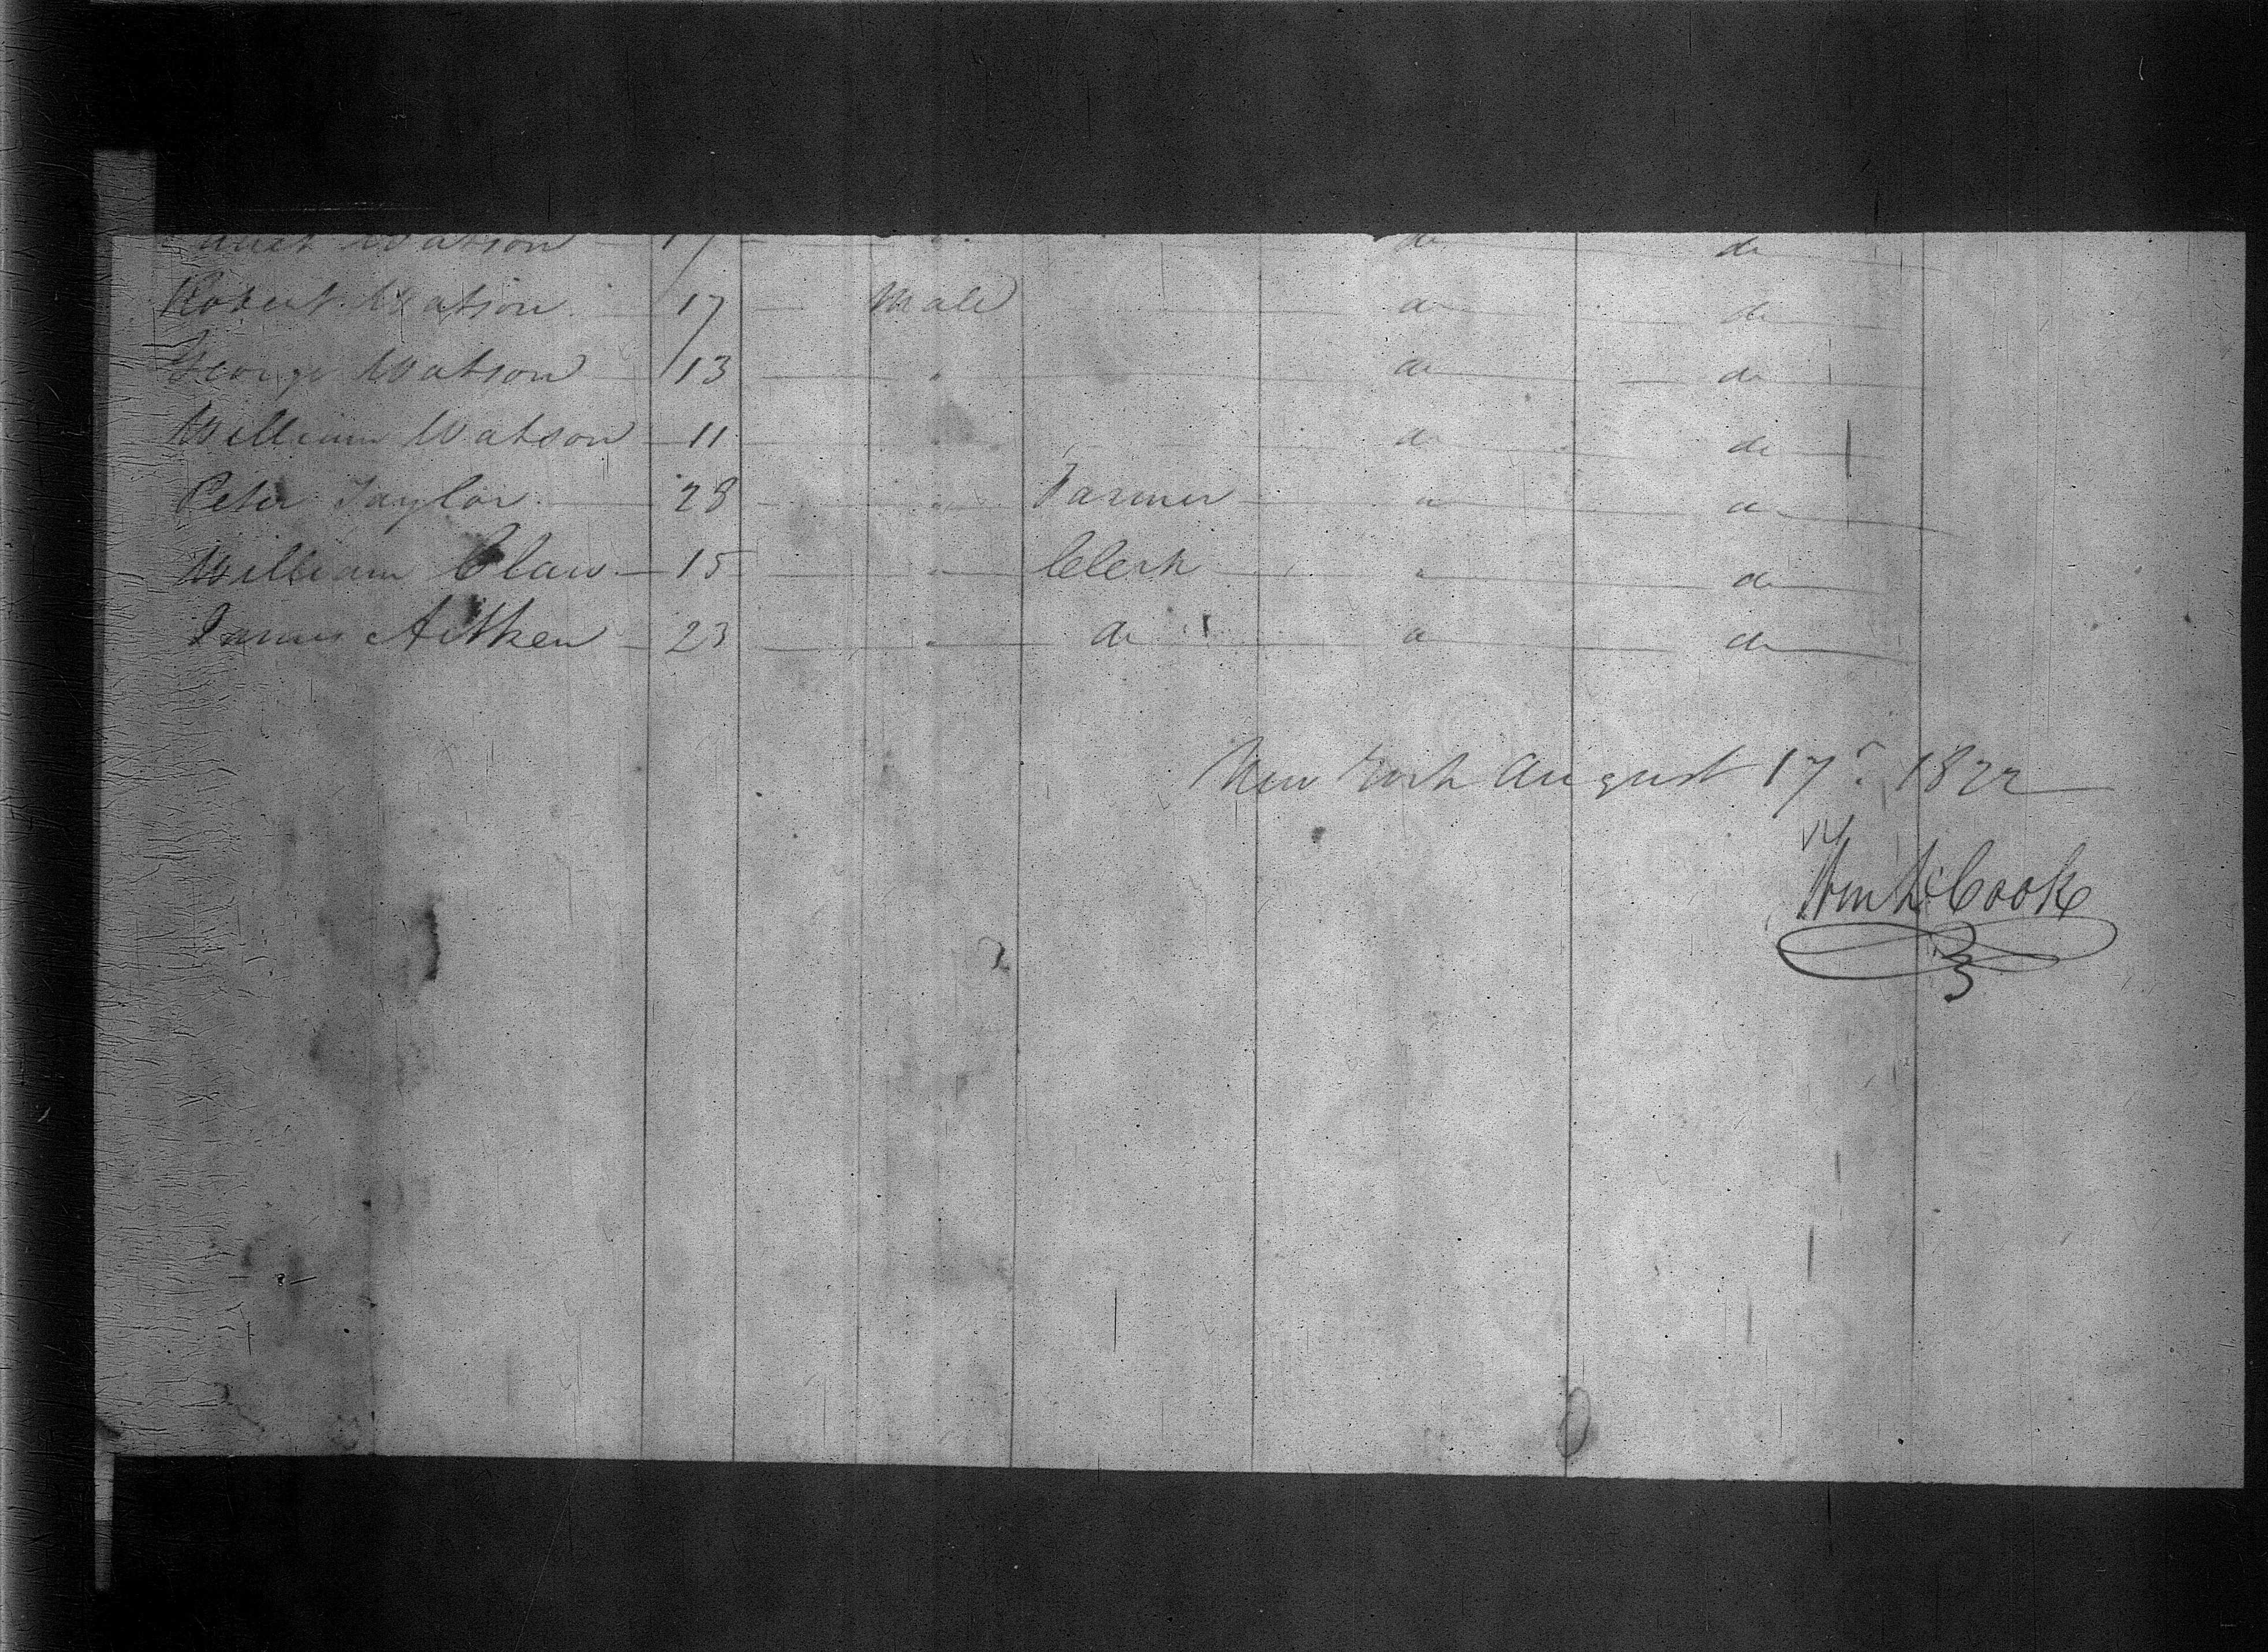 Watson 19 " do do
Robert Watson 17 Male do do
George Watson 13 " do do
William Watson 11 " do do
Peter Taylor 28 " Farmer " do
William Claw 15 " Clerk " do
James Aitken 23 " do " do
New York August 17th 1822
Wm Cook